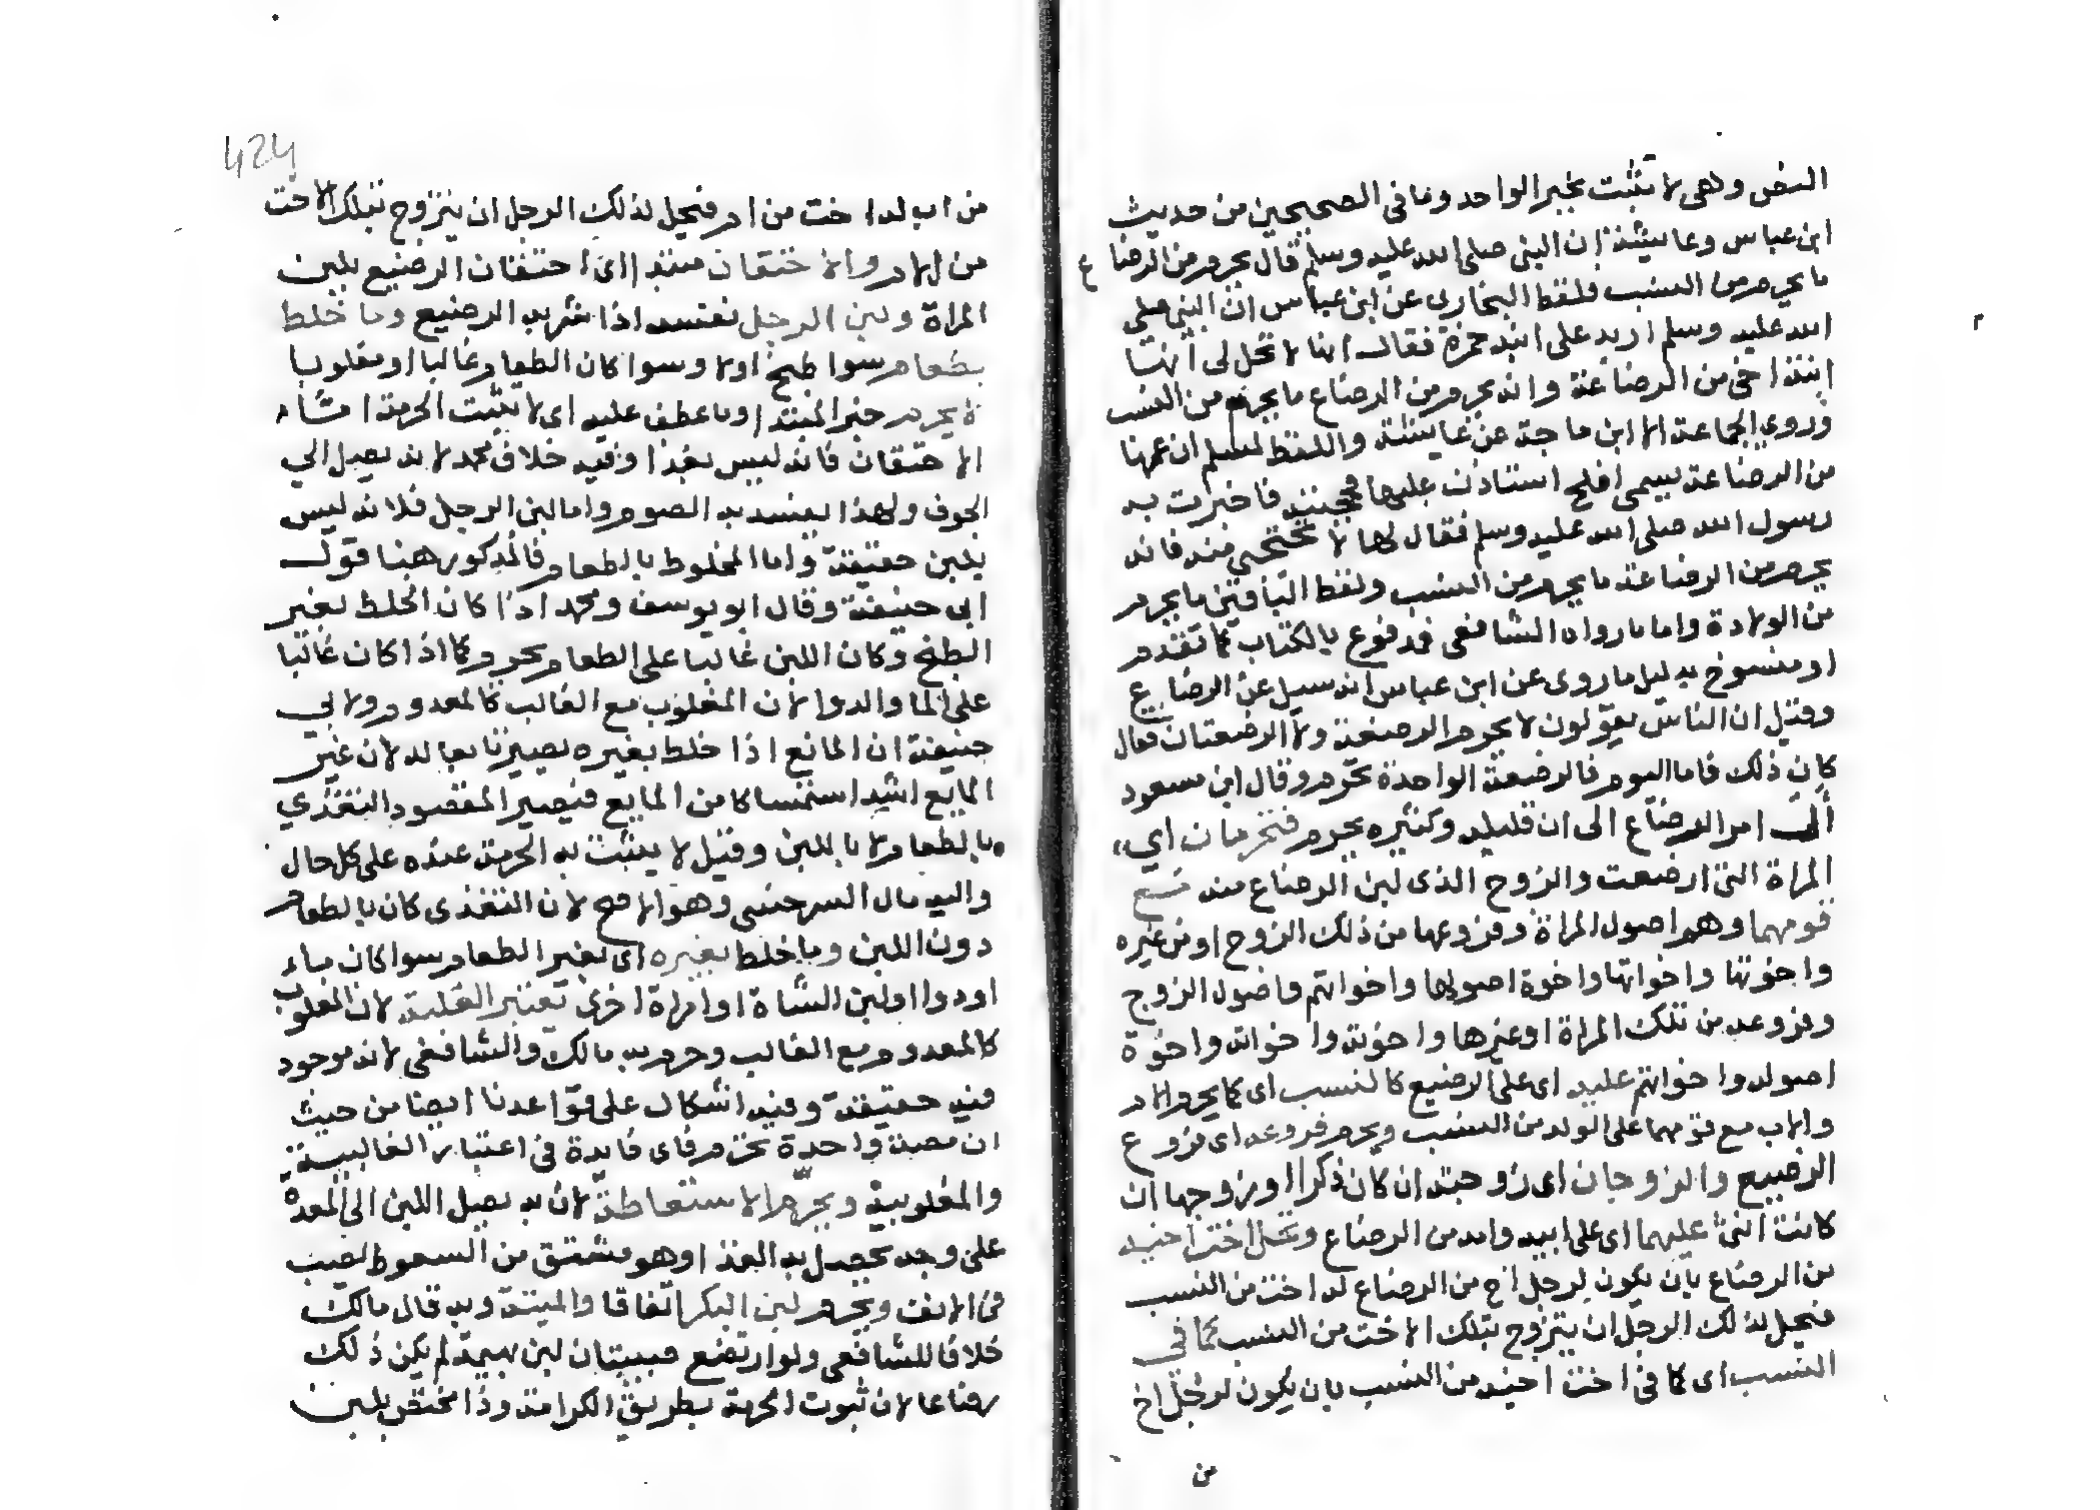 النص وهى لا تثبت بخبر الواحد وما فى الصحيحين من حديث
ابن عباس وعايشة ان النبى صلى الله عليه وسلم قال يحرم من الرضاع
ما يحرم من النسب فلفظ البخارى عن ابن عباس ان النبى صلى
الله عليه وسلم اريد على ابنة حمزة فقال انها لا تحل لى انها
ابنة اخى من الرضاعة وانه يحرم من الرضاع ما يحرم من النسب
وروى الجماعة الا ابن ماجة عن عايشة واللفظ لمسلم ان عمها
من الرضاعة يسمى افلح استاذن عليها فحجبته فاخبرت به
رسول الله صلى الله عليه وسلم فقال لها لا تحتجبى منه فانه
يحرم من الرضاعة ما يحرم من النسب ولفظ الباقين ما يحرم
من الولادة واما ما رواه الشافعى فمدفوع بالكتاب كما تقدم
او منسوخ بدليل ما روى عن ابن عباس انه سيل عن الرضاع
وقيل ان الناس يقولون لا يحرم الرضعة ولا الرضعتان فقال
كان ذلك فاما اليوم فالرضعة الواحدة تحرم وقال ابن مسعود
أل امر الرضاع الى ان قليله وكثيره يحرم فتحرمان اى
المراة التى ارضعت والزوج الذى لبن الرضاع منه مع
قومهما وهم اصول المراة وفروعها من ذلك الزوج او من غيره
واخوتها واخواتها واخوة اصولها واخواتهم واصول الزوج
وفروعه من تلك المراة او غيرها واخوته واخواته واخوة
اصوله واخواتهم عليه اى على الرضيع كالنسب اى كما يحرم الام
والاب مع قومهما على الولد من النسب ويحرم فروعه اى فروع
الرضيع والزوجان اى زوجته ان كان ذكرا او زوجها ان
كانت انثى عليهما اى على ابيه وامه من الرضاع وتحل اخت اخيه
من الرضاع بان يكون لرجل اخ من الرضاع له اخت من النسب
فيحل لذلك الرجل ان يتزوج بتلك الاخت من النسب كما فى
النسب اى كما فى اخت اخيه من النسب بان يكون لرجل اخ
من
424
من اب له اخت من ام فيحل لذلك الرجل ان يتزوج بتلك الاخت
من الام والاحتقان مبتدا اى احتقان الرضيع بلبن
المراة ولبن الرجل نفسه اذا شربه الرضيع وما خلط
بطعام سوا طبخ او لا وسوا كان الطعام غالبا او مغلوبا
لا يحرم خبر المبتدا وما عطف عليه اى لا يثبت الحرمة اما
الاحتقان فانه ليس بغدا وفيه خلاف محمد لانه يصل الى
الجوف ولهذا يفسد به الصوم واما لبن الرجل فلانه ليس
بلبن حقيقة واما المخلوط بالطعام فالمذكور هنا قول
ابى حنيفة وقال ابو يوسف ومحمد اذا كان الخلط بغير
الطبخ وكان اللبن غالبا على الطعام يحرم كما اذا كان غالبا
على الما والدوا لان المغلوب مع الغالب كالمعدوم ولابى
حنيفة ان المايع اذا خلط بغيره يصير تابعا له لان غير
المايع اشد استمساكا من المايع فيصير المقصود التغذى
بالطعام لا باللبن وقيل لا يثبت به الحرمة عنده على كل حال
واليه مال السرخسى وهو الاصح لان التغذى كان بالطعام
دون اللبن وما خلط بغيره اى بغير الطعام سوا كان ماء
او دوا او لبن الشاة او امراة اخرى تعتبر الغلبة لان المغلوب
كالمعدوم مع الغالب وحرم به مالك والشافعى لانه موجود
فيه حقيقة وفيه اشكال على قواعدنا ايضا من حيث
ان مصة واحدة تحرم فاى فايدة فى اعتبار الغالبية
والمغلوبية ويحرم الاستعاطة لان به يصل اللبن الى المعدة
على وجه يحصل به الغذا وهو مشتق من السعوط لصب
فى الانف ويحرم لبن البكر اتفاقا والميتة وبه قال مالك
خلافا للشافعى ولو ارتضع صبيتان لبن بهيمة لم يكن ذلك
رضاعا لان ثبوت الحرمة بطريق الكرامة وذا مختص بلبن